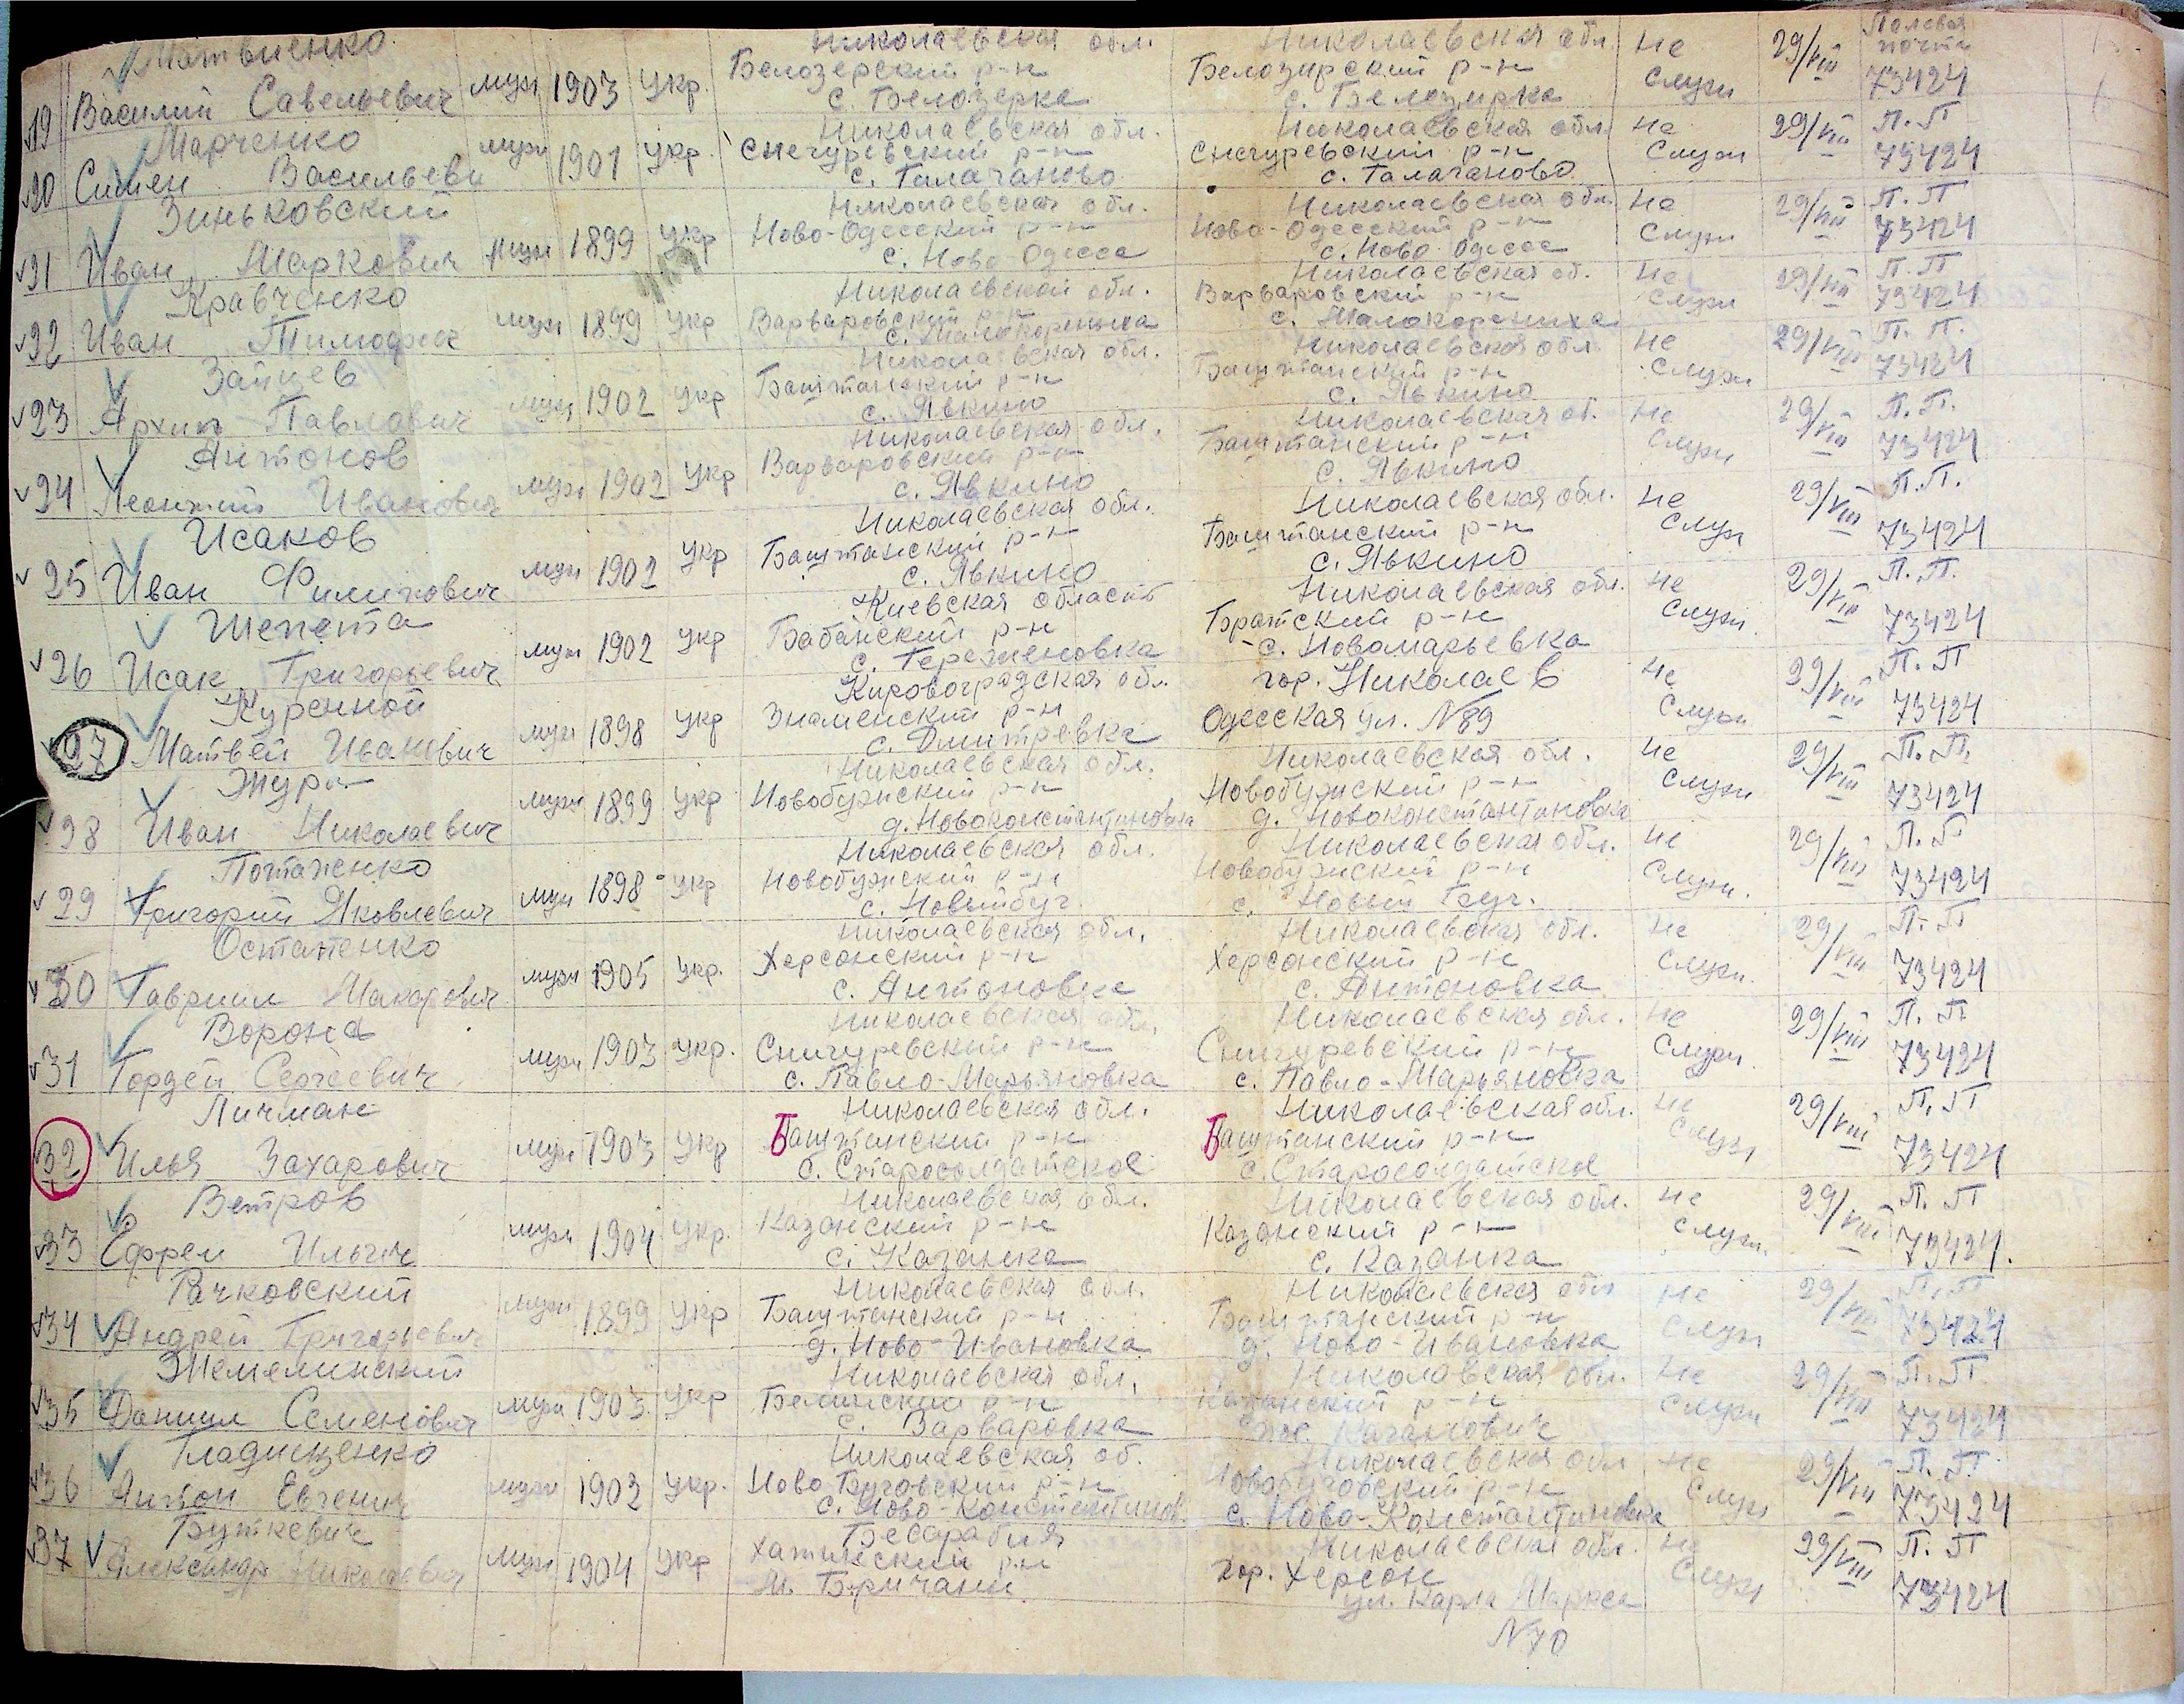 Матвиенко Николаевская обл. Николаевская обл. Не 29/VIII Полевая почта
19 Василий Савельевич муж 1903 укр. Белозерский р-н Белозирский р-н служ 73424
с. Белозерка с. Белозирка
Марченко Николаевская обл. Николаевская обл. Не 29/VIII П. П
20 Симен Васильеви муж 1901 укр. Снегуревский р-н Снегуревский р-н служ 73424
с. Галаганово с. Галаганово
Зиньковский Николаевская обл. Николаевская обл. Не 29/VIII П. П
21 Иван Маркович муж 1899 укр Ново-Одесский р-н Ново-Одесский р-н служ 73424
с. Ново Одесса с. Ново Одесса
Кравченко Николаевской обл. Николаевская об. Не 29/VIII П. П
22 Иван муж 1899 укр Варваровский р-н Варваровский р-н служ 73424
с. Малокорениха с. Малокорениха
Зайцев Николаевская обл. Николаевская обл Не 29/VIII П. П.
23 Архип Павлович муж 1902 укр Баштанский р-н Баштанский р-н служ 73424
с. Явкино с. Явкино
Антонов Николаевская обл. Николаевская об. Не 29/VIII П. П.
24 Леонтий Иванович муж 1902 укр Варваровский р-н Баштанский р-н служ 73424
с. Явкино с. Явкино
Исаков Николаевская обл. Николаевская обл. Не 29/VIII П. П.
25 Иван Филипович муж 1902 укр Баштанский р-н Баштанский р-н служ 73424
с. Явкино с. Явкино
Шепета Киевская област Николаевская обл. Не 29/VIII П. П.
26 Исак Григорьевич муж 1902 укр Бабанский р-н Братский р-н служ. 73424
с. Тереженовка с. Новомарьевка
Куренной Кировоградская обл. гор. Николаев Не 29/VIII П. П
27 Матвей Иванович муж 1898 укр Знаменский р-н Одесская ул. №89 служ 73424
с. Дмитревка
Жура Николаевская обл. Николаевская обл. Не 29/VIII П. П.
28 Иван Николаевич муж 1899 укр Новобужский р-н Новобужский р-н служ 73424
д. Новоконстантиновка д. Новоконстантиновка
Потаженко Николаевская обл. Николаевская обл. Не 29/VIII П. П
29 Григорий Яковлевич муж 1898 укр Новобужский р-н Новобужский р-н служ. 73424
с. Новыйбуг с. Новый Буг.
Остапенко Николаевская обл. Николаевская обл. Не 29/VIII П. П
30 Гавриил Макарович муж 1905 укр. Херсонский р-н Херсонский р-н служ. 73424
с. Антоновка с. Антоновка
Ворона Николаевская обл. Николаевская обл. Не 29/VIII П. П
31 Гордей Сергеевич муж 1903 укр. Снигуревский р-н Снигуревский р-н служ. 73424
с. Павло-Марьяновка с. Павло-Марьяновка
Личман Николаевская обл. Николаевская обл. Не 29/VIII П. П
32 Илья Захарович муж 1903 укр Баштанский р-н Баштанский р-н служ 73424
с. Старосолдатское с. Старосолдатское
Ветров Николаевская обл. Николаевская обл. Не 29/VIII П. П
33 Ефрем Ильич муж 1904 укр. Казанский р-н Казанский р-н служ. 73424.
с. Казанка с. Казанка
Рачковский Николаевская обл. Николаевская обл Не 29/VIII П. П
34 Андрей Григорьевич муж 1899 укр Баштанский р-н Баштанский р-н служ 73424
д. Ново-Ивановка д. Ново-Ивановка
Жемелинский Николаевская обл. Николавская обл. Не 29/VIII П. П.
35 Даниил Семенович муж 1903 укр р-н Казанский р-н служ 73424
с. Варваровка Каганович
Гладищенко Николаевская об. Николаевская обл Не 29/VIII П. П.
36 Антон Евгенич муж 1902 укр. Ново Буговский р-н Новобуговский р-н служ 73424
с. Ново-Константинов. с. Ново-Константиновка
Буткевич Бесарабия Николаевская обл. Не 29/VIII П. П
37 Александр Николаевич муж 1904 укр р-н гор. Херсон служ 73424
М. Бричани ул. Карла Маркса
№70